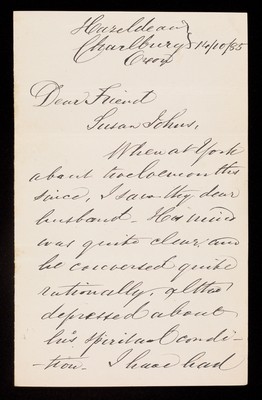 Hazeldean
Charlbury 14/10/85
Oxon
Dear Friend
Susan Johns,
When at York
about twelve months
since, I saw thy dear
husband. His mind
was quite clear, and
he conversed quite
rationally, altho'
depressed about
his spiritual condi-
-tion. I have had